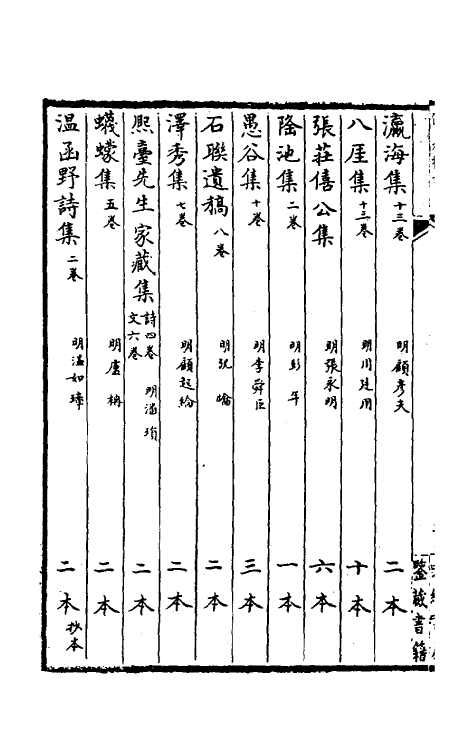 瀛海集十三卷 明顧彥夫 二本
八厓集十三卷 明周廷用 十本
張莊僖公集 明張永明 六本
隆池集二卷 明彭年 一本
愚谷集十卷 明李舜臣 三本
石聯遺稿八卷 明祝 二本
澤秀集七卷 明顧起綸 二本
熙臺先生家藏集詩四卷文六卷 明潘 二本
蠛蠓集五卷 明盧柟 二本
温函野詩集二卷 明温如璋 二本抄本
鑒藏書籍